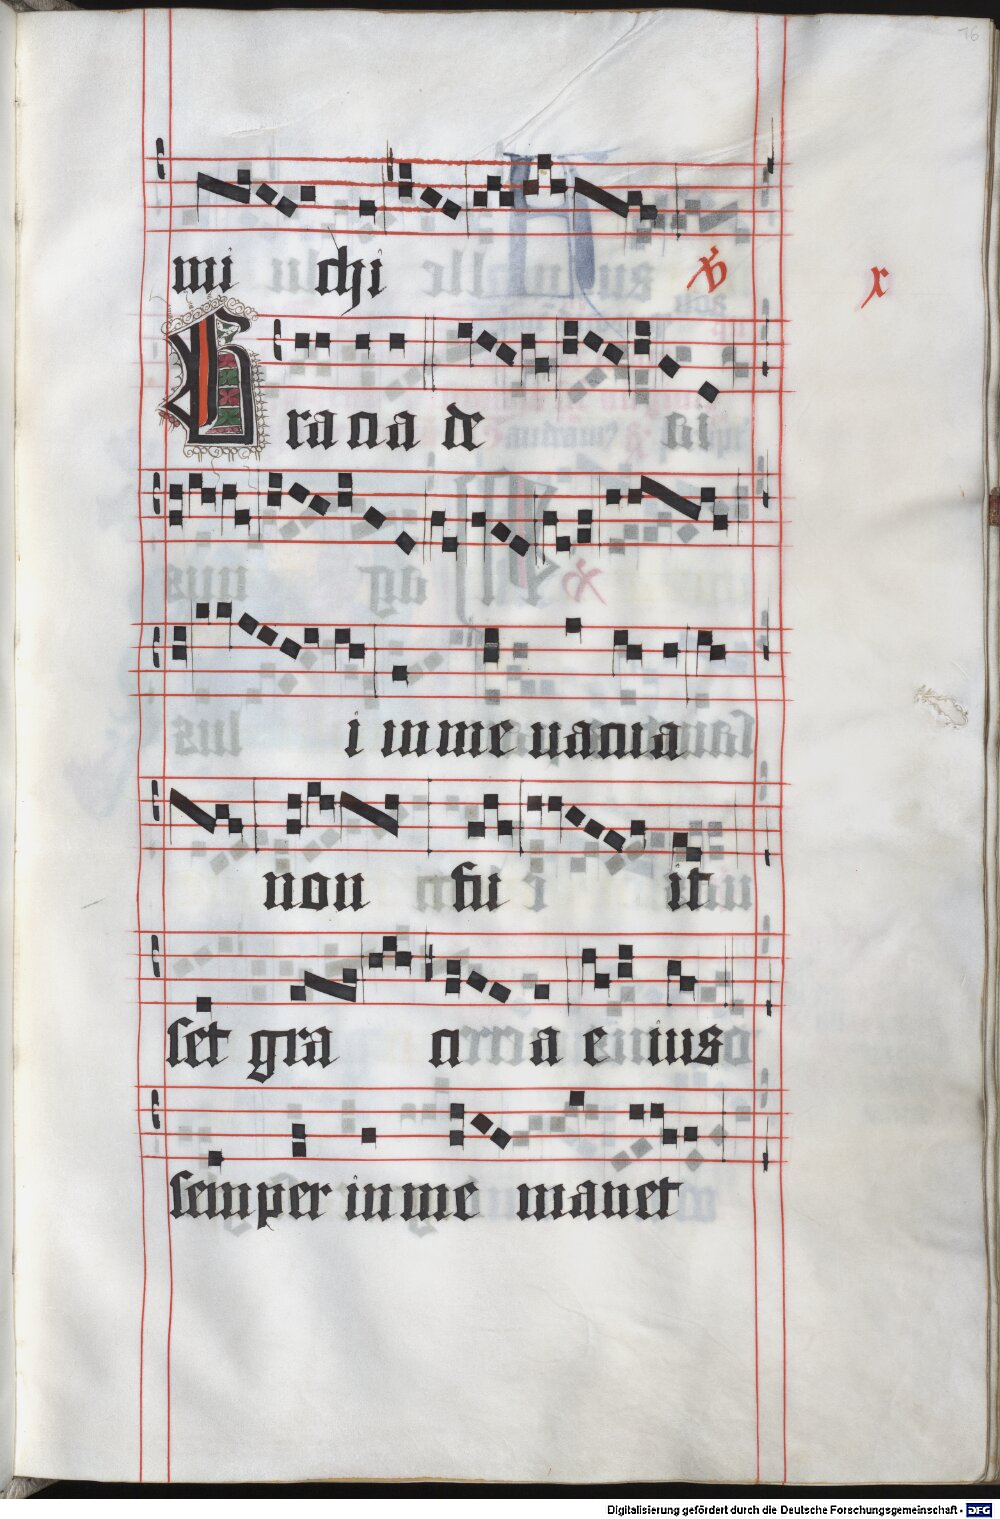 76
mi chi ℣ x
Gracia de
i
i in me uacua
non fu it
set gra ci a eiius
semper in me manet
Digitalisierung gefördert durch die Deutsche Forschungsgemeinschaft - DFG